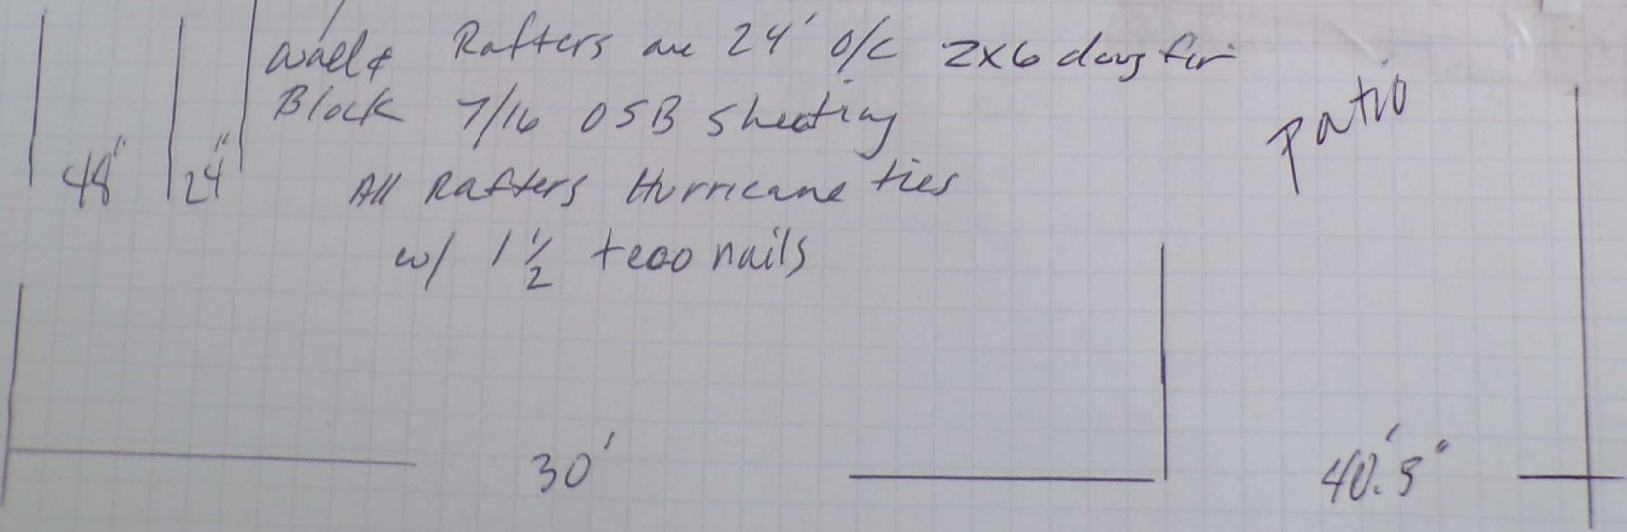 Wall & Rafters are 24' O/C 2x6 doug fir
Block 7/16 OSB Sheeting
All Rafters Hurricane ties
w/ 1 1/2 teco nails
Patio
48" 24"
30' 40'.5"